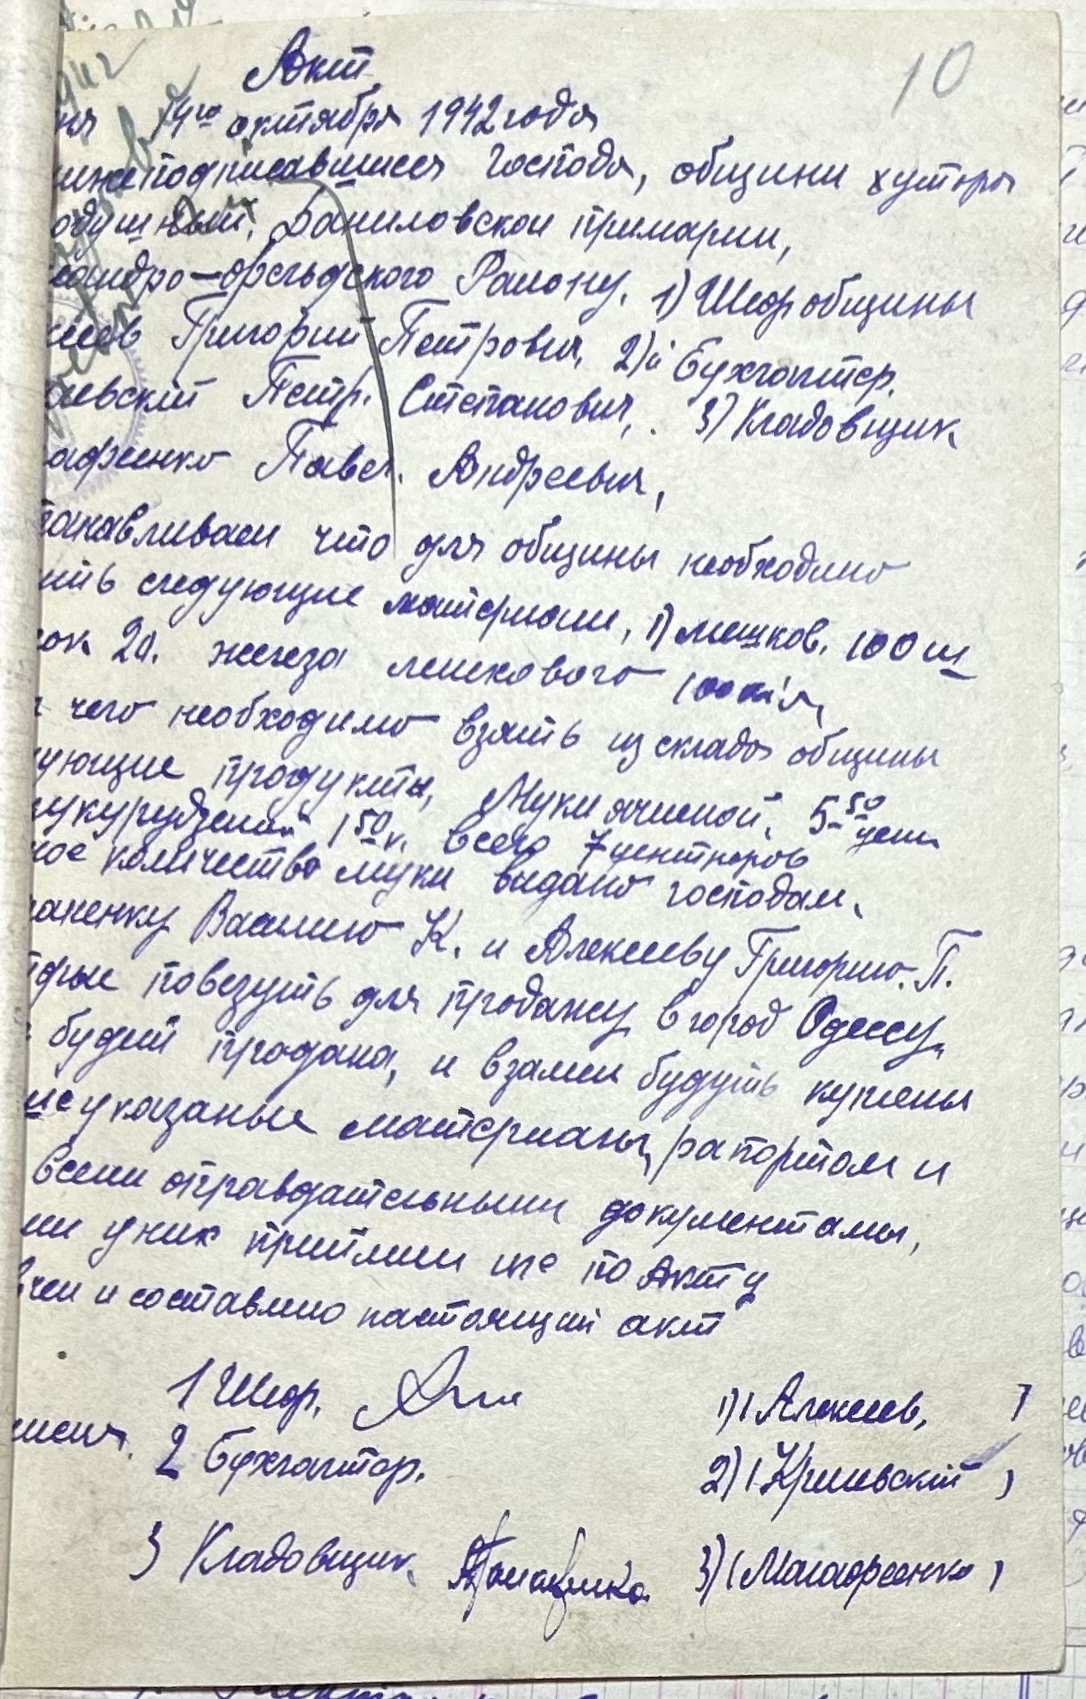 10
Акт
ня 14го октября 1942 года
нижеподписавшиеся господа, общины хутора
Даниловской примарии,
фельдского Району. 1) Шеф общины
еев Григорий Петрович, 2) Бухгалтер.
аевский Петр. Степанович, 3) Кладовщик
афиенко Павел. Андреевич,
танавливаем что для общины необходимо
ить следующие материали, 1) мешков. 100 ш
ок 2). железа 100 кіл,
чего необходимо взять из склада общины
ующие продукты, Муки ячменой, 5-50 цен
укурудзеной 1 50 к. всего 7 центнеров
ное количество муки видано господам,
паненку Василию К. и Алексееву Григорию. П.
торые повезуть для продажу в город Одессу,
будет продана, и взамен будуть куплены
указаные материалы, рапортом и
всеми оправдательными документамы,
ми у них примим же по Акту
в чем и составлено настоящий акт
1 Шеф. 1) (Алексеев,
2 Бухгалтер. 2) (Криевский)
3 Кладовщик. 3) (Малафеенко)